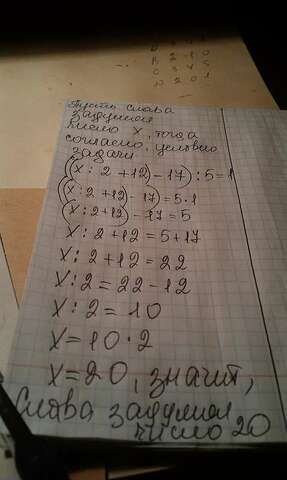 Пусть слава
задумал
число X, тогда
согласно, условию
задачи
(X : 2 + 12) - 17) : 5 = 1
(X : 2 + 12) - 17) = 5·1
(X : 2 + 12) - 17 = 5
X : 2 + 12 = 5 + 17
X : 2 + 12 = 22
X : 2 = 22 - 12
X : 2 = 10
X = 10 · 2
X = 20, значит,
Слава задумал
число 20